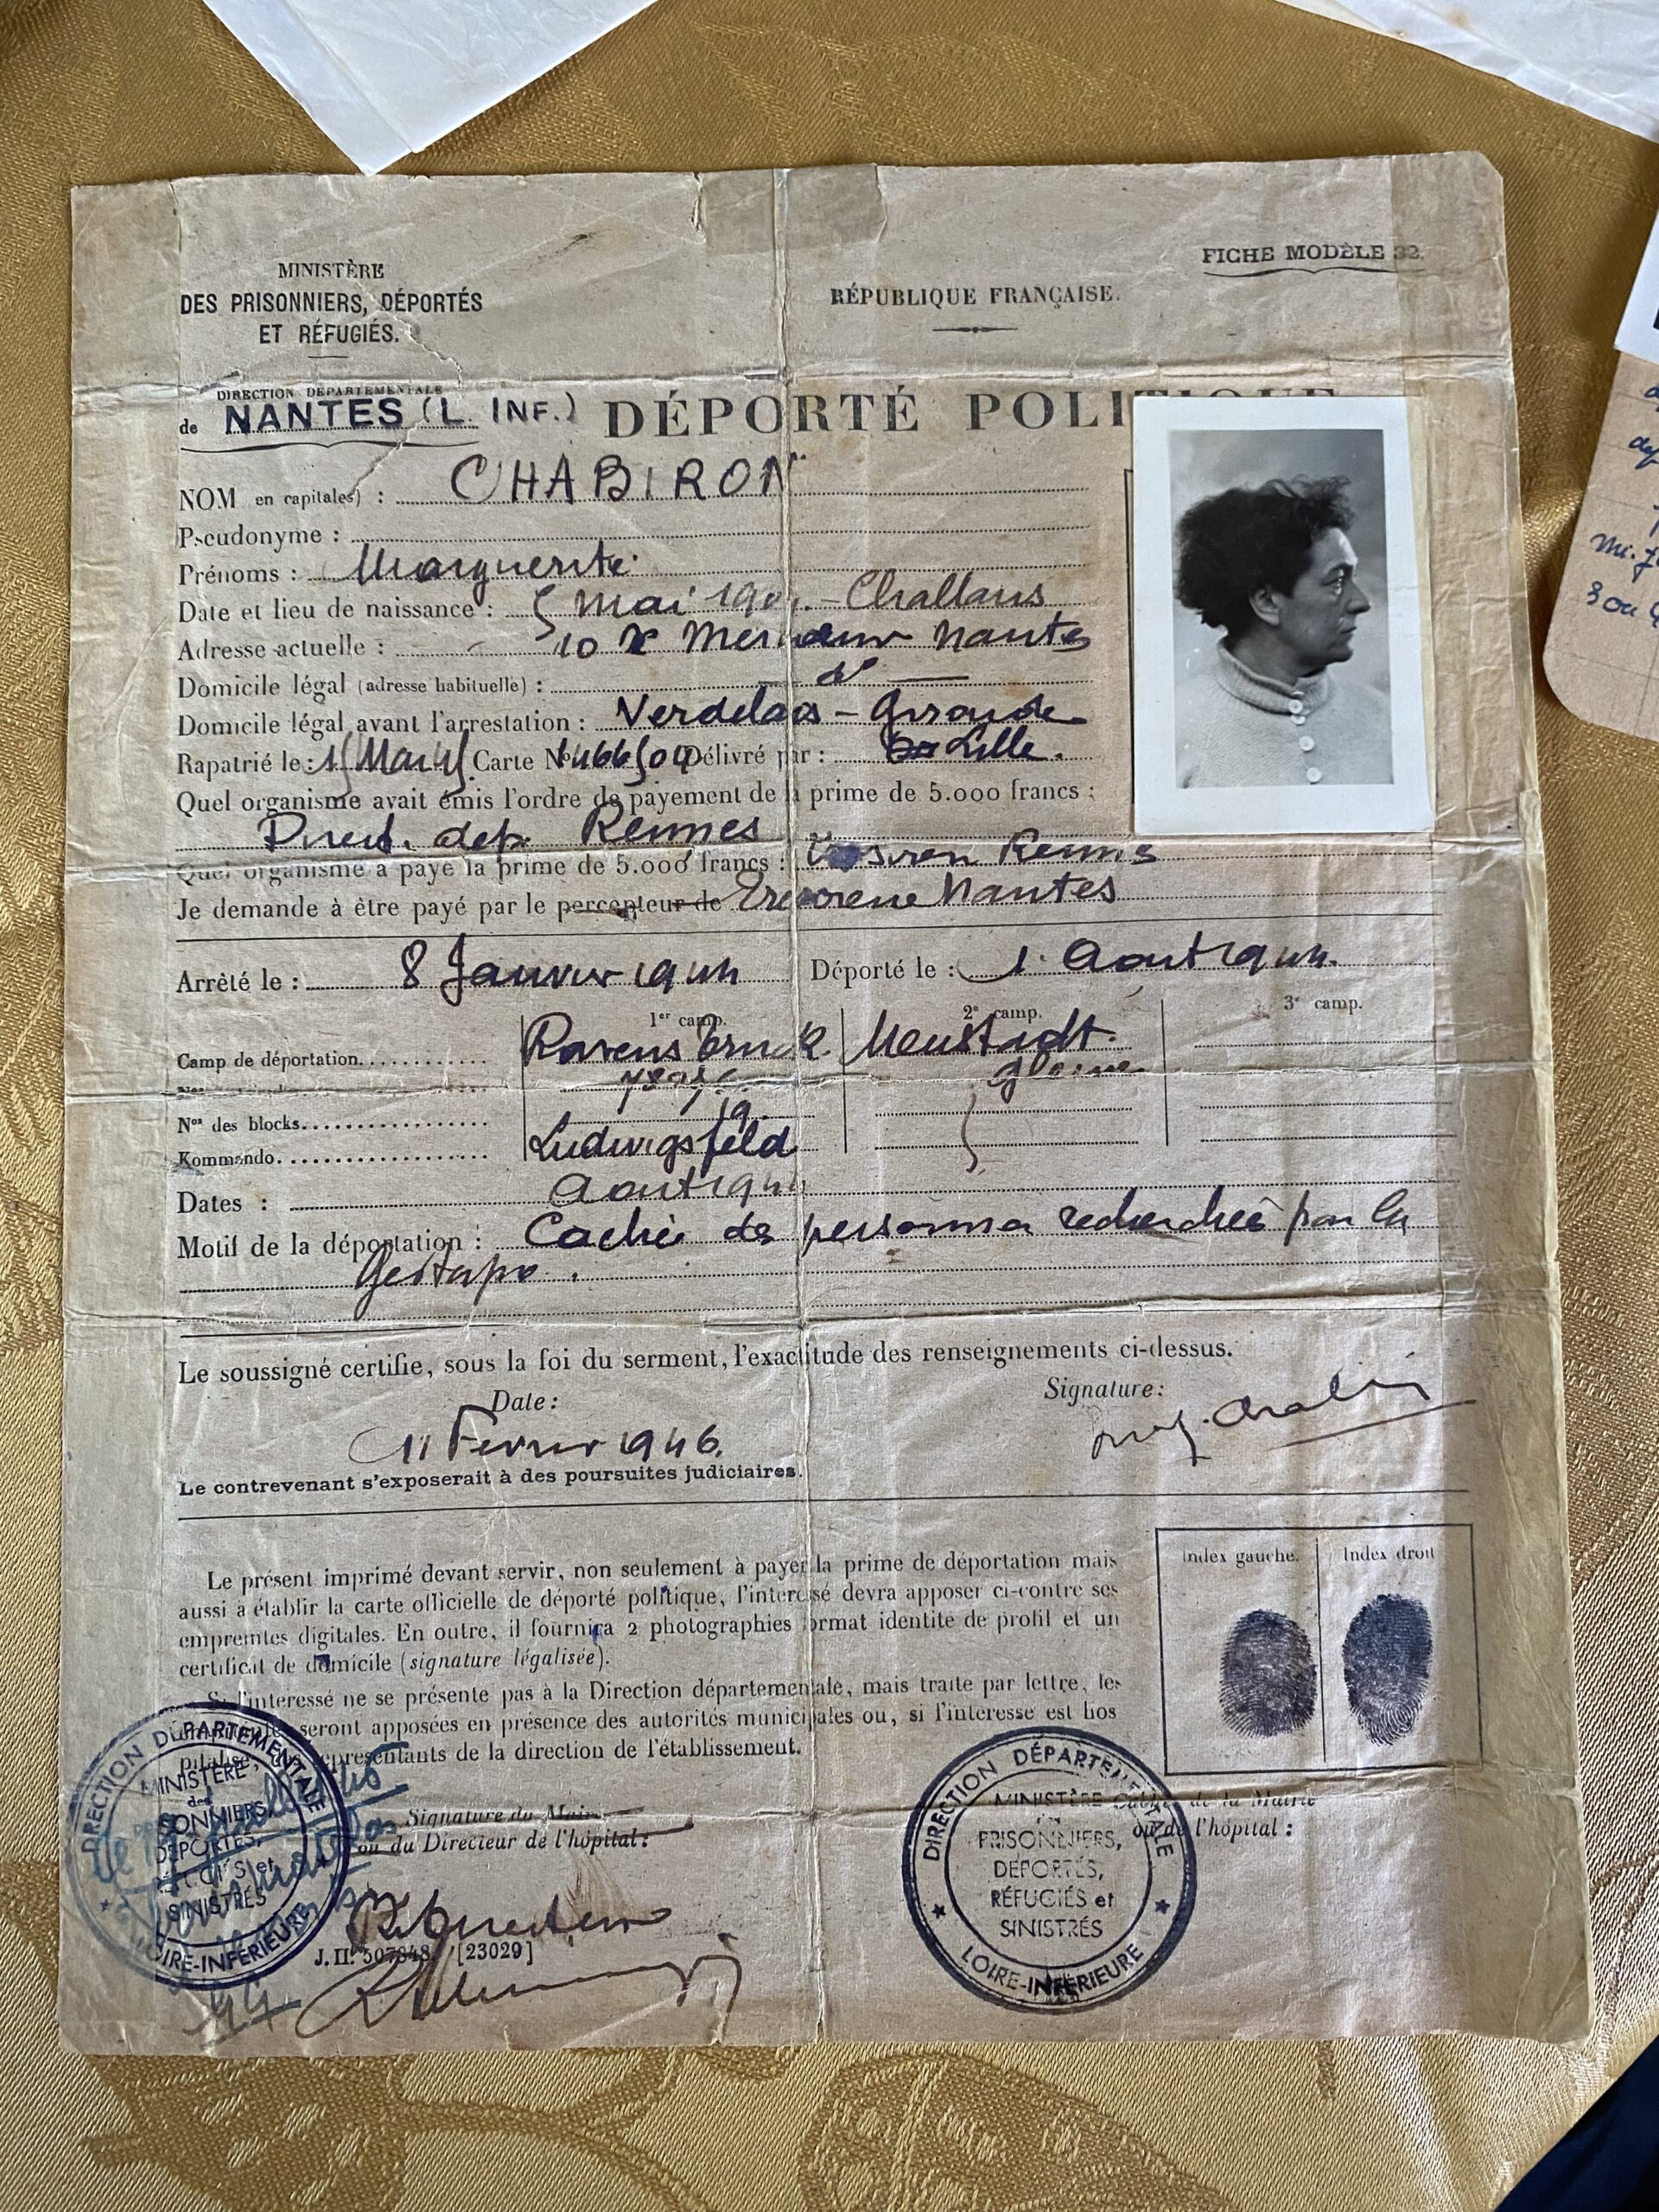 MINISTÈRE
DES PRISONNIERS, DÉPORTÉS
ET RÉFUGIÉS.
RÉPUBLIQUE FRANÇAISE.
FICHE MODÈLE 32.
DIRECTION DÉPARTEMENTALE
de NANTES (L. INF.)
DÉPORTÉ POLITIQUE
NOM en capitales) : CHABIRON
Pseudonyme :
Prénoms : Marguerite
Date et lieu de naissance : 5 mai 190 - Challans
Adresse actuelle : 10 Nantes
Domicile légal (adresse habituelle) : d°
Domicile légal avant l'arrestation : Verdelais - Gironde
Rapatrié le : 15 Mai 45 Carte N° 1466504 Délivré par : Lille.
Quel organisme avait émis l'ordre de payement de la prime de 5.000 francs :
Direct. dep. Rennes
Quel organisme a payé la prime de 5.000 francs : Rennes
Je demande à être payé par le percepteur de Nantes
Arrêté le : 8 Janvier 1944 Déporté le : 1 Aout 1944.
1er camp. 2e camp. 3e camp.
Camp de déportation Ravensbruck Neustadt.
Glewe
Nos des blocks 19.
Kommando Ludwigsfeld
Dates : Aout 1944
Motif de la déportation : Caché des personnes recherchées par la
Gestapo.
Le soussigné certifie, sous la foi du serment, l'exactitude des renseignements ci-dessus.
Date :
Signature :
11 Fevrier 1946.
Le contrevenant s'exposerait à des poursuites judiciaires.
Le présent imprimé devant servir, non seulement à payer la prime de déportation mais
aussi à établir la carte officielle de déporté politique, l'intéressé devra apposer ci-contre ses
empreintes digitales. En outre, il fournira 2 photographies format identité de profil et un
certificat de domicile (signature légalisée).
Si l'intéressé ne se présente pas à la Direction départementale, mais traite par lettre, les
seront apposées en présence des autorités municipales ou, si l'intéressé est hos
pitalisé, représentants de la direction de l'établissement.
Index gauche. Index droit
Signature du Maire
ou du Directeur de l'hôpital :
Cachet de la Mairie
ou de l'hôpital :
DIRECTION DÉPARTEMENTALE
MINISTÈRE
des
PRISONNIERS,
DÉPORTÉS,
RÉFUGIÉS et
SINISTRÉS
LOIRE-INFÉRIEURE
DIRECTION DÉPARTEMENTALE
MINISTÈRE
PRISONNIERS,
DÉPORTÉS,
RÉFUGIÉS et
SINISTRÉS
LOIRE-INFÉRIEURE
J. П. 507848 [23029]